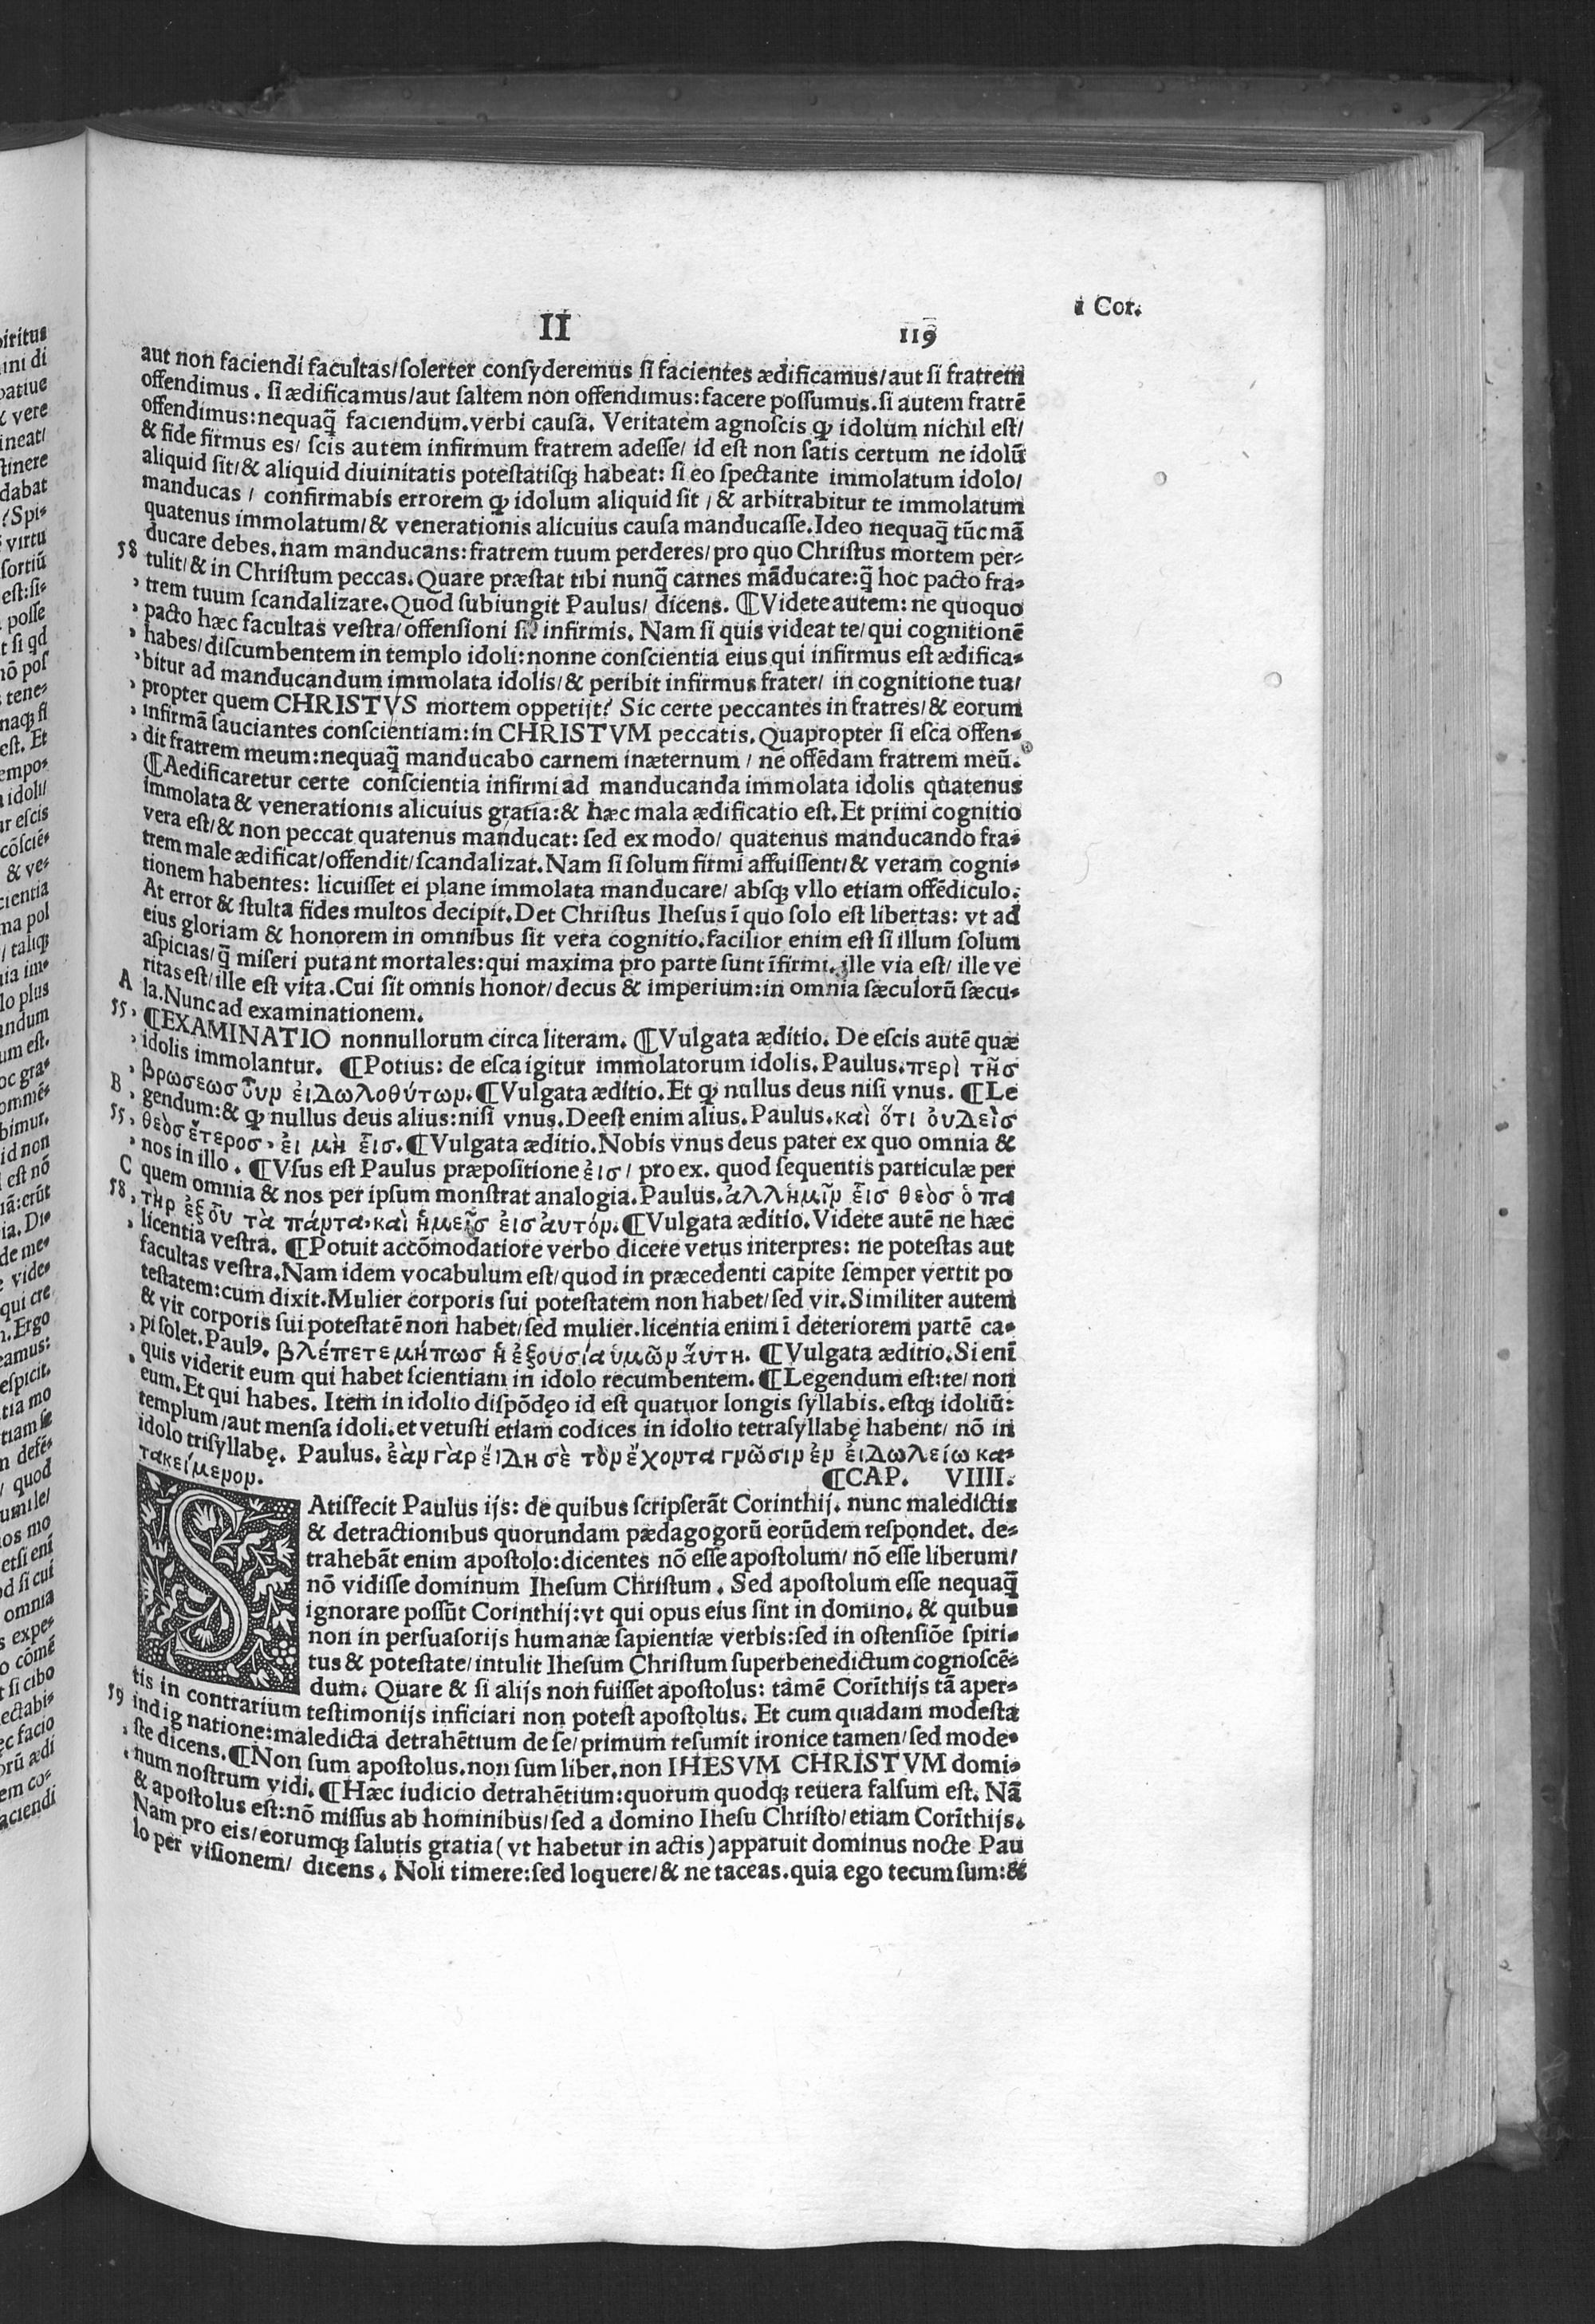 i Cor.
II 119
aut non faciendi facultas/ſolerter conſyderemus ſi facientes ædificamus/aut ſi fratrem
offendimus. ſi ædificamus/aut ſaltem non offendimus: facere poſſumus. ſi autem fratrẽ
offendimus: nequaq̃ faciendum. verbi cauſa. Veritatem agnoſcis ꝙ idolum nichil eſt/
& fide firmus es/ ſcis autem infirmum fratrem adeſſe/ id eſt non ſatis certum ne idolũ
aliquid ſit/& aliquid diuinitatis poteſtatiſqꝫ habeat: ſi eo ſpectante immolatum idolo/
manducas / confirmabis errorem ꝙ idolum aliquid ſit / & arbitrabitur te immolatum
quatenus immolatum/& venerationis alicuius cauſa manducaſſe. Ideo nequaq̃ tũc mã
ducare debes. nam manducans: fratrem tuum perderes/pro quo Chriſtus mortem per⸗
58 tulit/& in Chriſtum peccas. Quare præſtat tibi nunq̃ carnes mãducare: q̃ hoc pacto fra⸗
, trem tuum ſcandalizare. Quod ſubiungit Paulus/ dicens. ¶Videte autem: ne quoquo
, pacto hæc facultas veſtra/offenſioni ſit infirmis. Nam ſi quis videat te/qui cognitionẽ
, habes/diſcumbentem in templo idoli: nonne conſcientia eius qui infirmus eſt ædifica⸗
, bitur ad manducandum immolata idolis/& peribit infirmus frater/ in cognitione tua/
, propter quem CHRISTVS mortem oppetijt? Sic certe peccantes in fratres/& eorum
, infirmã ſauciantes conſcientiam: in CHRISTVM peccatis. Quapropter ſi eſca offen⸗
, dit fratrem meum: nequaq̃ manducabo carnem inæternum / ne offẽdam fratrem meũ.
¶Aedificaretur certe conſcientia infirmi ad manducanda immolata idolis quatenus
immolata & venerationis alicuius gratia: & hæc mala ædificatio eſt. Et primi cognitio
vera eſt/& non peccat quatenus manducat: ſed ex modo/ quatenus manducando fra⸗
trem male ædificat/offendit/ſcandalizat. Nam ſi ſolum firmi affuiſſent/& veram cogni⸗
tionem habentes: licuiſſet ei plane immolata manducare/ abſqꝫ vllo etiam offẽdiculo.
At error & ſtulta fides multos decipit. Det Chriſtus Iheſus ĩ quo ſolo eſt libertas: vt ad
eius gloriam & honorem in omnibus ſit vera cognitio. facilior enim eſt ſi illum ſolum
aſpicias/q̃ miſeri putant mortales: qui maxima pro parte ſunt ĩfirmi. ille via eſt/ ille ve
ritas eſt/ille eſt vita. Cui ſit omnis honor/decus & imperium: in omnia ſæculorũ ſæcu⸗
A la. Nunc ad examinationem.
55, ¶EXAMINATIO nonnullorum circa literam. ¶Vulgata æditio. De eſcis autẽ quæ
, idolis immolantur. ¶Potius: de eſca igitur immolatorum idolis. Paulus. περὶ τῆσ
, βρώσεωσ οὖν ἐιδωλοθύτων. ¶Vulgata æditio. Et ꝙ nullus deus niſi vnus. ¶Le
B , gendum: & ꝙ nullus deus alius: niſi vnus. Deeſt enim alius. Paulus. καὶ ὅτι ὀυδεὶσ
55, θεὸσ ἕτεροσ, ἐι μὴ ἷεισ. ¶Vulgata æditio. Nobis vnus deus pater ex quo omnia &
, nos in illo. ¶Vſus eſt Paulus præpoſitione ἐισ/ pro ex. quod ſequentis particulæ per
C quem omnia & nos per ipſum monſtrat analogia. Paulus. ἀλλἡμῖν ἷεισ θεὸσ ὁ πα
58, τὴρ ἐξ οὗ τὰ πάντα. καὶ ἡμεῖσ ἐισ ἀυτόν. ¶Vulgata æditio. Videte autẽ ne hæc
, licentia veſtra. ¶Potuit accõmodatiore verbo dicere vetus interpres: ne poteſtas aut
facultas veſtra. Nam idem vocabulum eſt/quod in præcedenti capite ſemper vertit po
teſtatem: cum dixit. Mulier corporis ſui poteſtatem non habet/ſed vir. Similiter autem
& vir corporis ſui poteſtatẽ non habet/ſed mulier. licentia enim ĩ deteriorem partẽ ca⸗
, pi ſolet. Paulꝰ. βλέπετε μήπωσ ἡ ἐξουσία ὑμῶν ἅυτη. ¶Vulgata æditio. Si enĩ
, quis viderit eum qui habet ſcientiam in idolo recumbentem. ¶Legendum eſt: te/ non
eum. Et qui habes. Item in idolio diſpõdęo id eſt quatuor longis ſyllabis. eſtqꝫ idoliũ:
templum/aut menſa idoli. et vetuſti etiam codices in idolio tetraſyllabę habent/ nõ in
idolo triſyllabę. Paulus. ἐὰν γὰρ ἔιδη σὲ τὸν ἔχοντα γνῶσιν ἐν ἐιδωλείω κα⸗
τακείμενον. ¶CAP. VIIII.
SAtiſfecit Paulus ijs: de quibus ſcripſerãt Corinthij. nunc maledictis
& detractionibus quorundam pædagogorũ eorũdem reſpondet. de⸗
trahebãt enim apoſtolo: dicentes nõ eſſe apoſtolum/ nõ eſſe liberum/
nõ vidiſſe dominum Iheſum Chriſtum. Sed apoſtolum eſſe nequaq̃
ignorare poſſũt Corinthij: vt qui opus eius ſint in domino. & quibus
non in perſuaſorijs humanæ ſapientiæ verbis: ſed in oſtenſiõe ſpiri⸗
tus & poteſtate/intulit Iheſum Chriſtum ſuperbenedictum cognoſcẽ⸗
dum. Quare & ſi alijs non fuiſſet apoſtolus: tamẽ Corĩthijs tã aper⸗
tis in contrarium teſtimonijs inficiari non poteſt apoſtolus. Et cum quadam modeſta
59 indignatione: maledicta detrahẽtium de ſe/primum reſumit ironice tamen/ſed mode⸗
, ſte dicens. ¶Non ſum apoſtolus. non ſum liber. non IHESVM CHRISTVM domi⸗
, num noſtrum vidi. ¶Hæc iudicio detrahẽtium: quorum quodqꝫ reuera falſum eſt. Nã
& apoſtolus eſt: nõ miſſus ab hominibus/ſed a domino Iheſu Chriſto/etiam Corĩthijs.
Nam pro eis/eorumqꝫ ſalutis gratia (vt habetur in actis) apparuit dominus nocte Pau
lo per viſionem/ dicens. Noli timere: ſed loquere/& ne taceas. quia ego tecum ſum: &